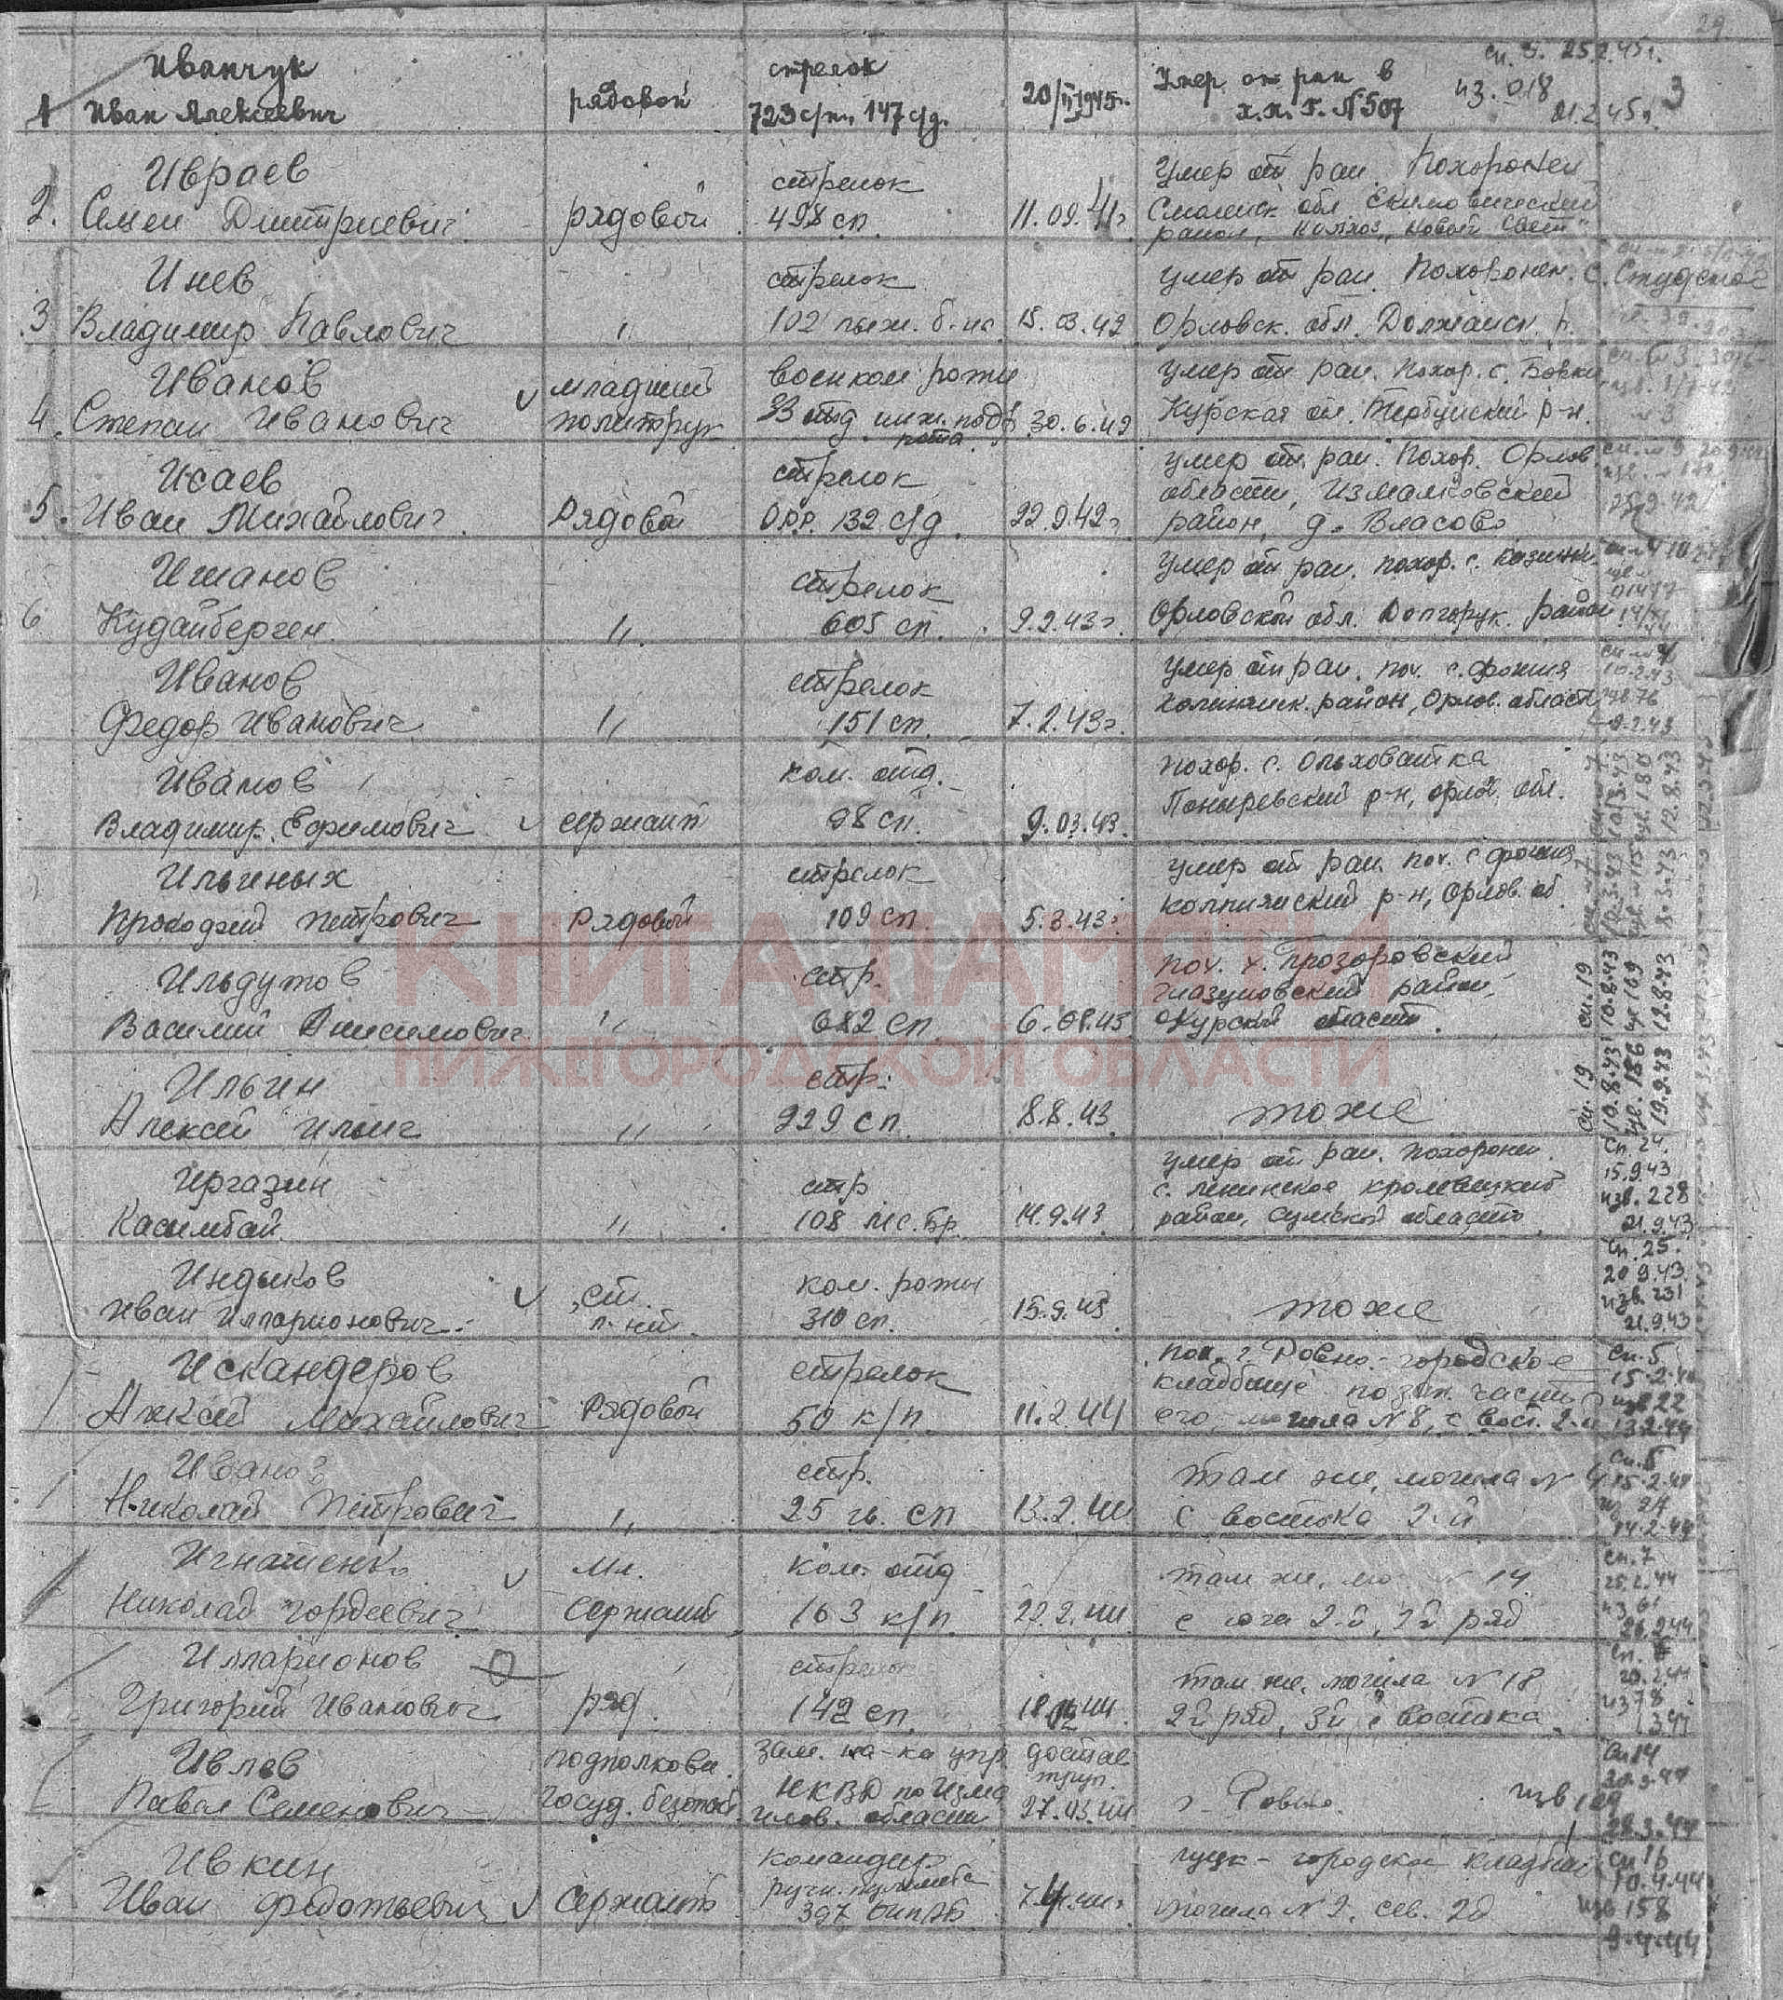 29.
Иванчук
Иван Алексеевич
1
рядовой
стрелок
723 с/п, 147 с/д.
20/II 1945г.
Умер от ран в
х.п.г. №507
сп. 4. 25.2.45г.
из. 018
21.2.45г.
3
2. Ивраев
Семен Дмитриевич
рядовой
стрелок
498 сп.
11.09.41г
Умер от ран. Похоронен
Смоленск. обл.
район, колхоз "Новый Свет"
3 Инев
Владимир Павлович
"
стрелок
15.03.42
умер от ран. Похоронен. с. Студеное
Орловск. обл. Должанск. р.
4. Иванов
Степан Иванович
младший
политрук
военком роты
рота
30.6.42
умер от ран. Похор. с.
Курская об. Тербунский р-н.
5. Исаев
Иван Михайлович
Рядовой
стрелок
О.Р.Р. 132 с/д
22.9.42г
умер от ран. Похор. Орлов.
области, Измалковский
район, д. Власово
25.9.42
6 Ишанов
Кудайберген
"
стрелок
605 сп.
9.2.43г.
умер от ран. похор. с. Казинка
Орловской обл. Долгорук. район
Иванов
Федор Иванович
"
стрелок
151 сп.
7.2.43г.
умер от ран. пох. с. Фошня
Колпнянск. район, Орлов. област
Иванов
Владимир Ефимович
сержант
ком. отд.
98 сп.
9.03.43
похор. с. Ольховатка
Поныревский р-н, орлов. обл.
Ильиных
Прокофий Петрович
Рядовой
стрелок
109 сп.
5.3.43г
умер от ран. пох. с Фошня
колпнянский р-н, Орлов. об.
Ильдутов
Василий Анисимович
"
стр.
682 сп.
6.08.43
пох. х. Прозоровский
Глазуновский район,
Курской области.
сп. 19
10.8.43
из 169
12.8.43
Ильин
Алексей Ильич
"
стр.
929 сп.
8.8.43
тоже
сп. 19
10.8.43
из. 186
19.9.43
Иргазин
Касимбай
"
стр
108 мс. бр.
14.9.43
умер от ран. похоронен.
с. Ленинское кролевецкий
район, сумской области
сп. 24.
15.9.43
изв. 228
21.9.43
Индыков
Иван Илларионович
ст.
л-нт.
ком. роты
310 сп.
15.9.43
тоже
сп. 25.
20 9.43.
изв. 231
21.9.43
Искандеров
Алексей Михайлович
Рядовой
стрелок
50 к/п.
11.2.44
пох. г Ровно. городское
кладбище по зап. части
его, могила №8, с вост. 2-й
сп. 5
15.2.44
изв 22
13.2.44
Иванов
Николай Петрович
"
стр.
25 гв. сп
13.2.44
там же, могила № 4
с востока 2-й
сп. 5
15.2.44
из 24
14.2.44
Игнатенко
Николай Гордеевич
Мл.
Сержант
ком. отд
163 к/п.
22.2.44
там же, мо № 14
с юга 2-й, 2й ряд
сп. 7
25.2.44
из 61
26.2.44
Илларионов
Григорий Иванович
ряд.
стрелок
142 сп.
18.02.44
там же, могила № 18
2й ряд, 3й с востока.
из 78
Ивлев
Павел Семенович
подполковн.
Госуд. безопас.
зам. на-ка упр
НКВД по Изма
илов. области
достав
труп.
27.03.44
г. Ровно.
изв 109
сп 14
30.3.44
28.3.44
Ивкин
Иван Федотьевич
Сержант
командир
ручн. пулемета
397
7.4.44г
луцк - городское кладбище
могила № 2. сев. 2д
сп 16
10.4.44
изв 158
9.4.44
КНИГА ПАМЯТИ
НИЖЕГОРОДСКОЙ ОБЛАСТИ